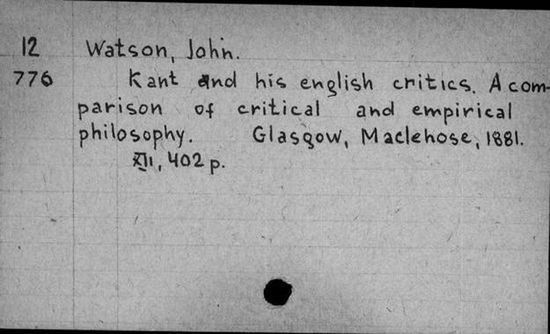 12 Watson, John.
776 Kant and his english critics. A com-
parison of critical and empirical
philosophy. Glasgow, Maclehose, 1881.
XII, 402 p.